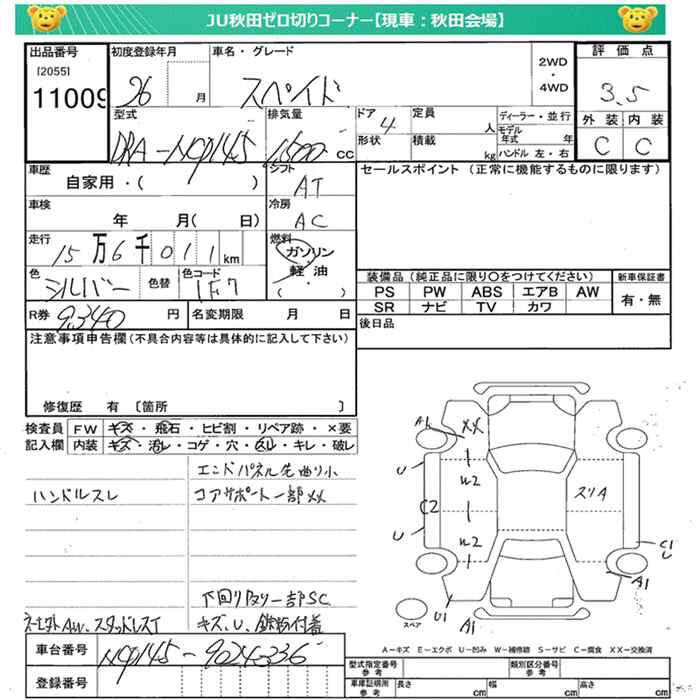 JU秋田ゼロ切りコーナー【現車：秋田会場】
出品番号 初度登録年月 車名・グレード 評価点
[2055]
11009 26 月 スペイド 2WD・4WD 3.5
型式 排気量 ドア 定員 ディーラー・並行 外装 内装
DBA-NCP145 1,500 CC 4 人 モデル年式 年 C C
形状 積載 kg ハンドル 左・右
車歴 シフト セールスポイント（正常に機能するものに限ります）
自家用・( ) AT
車検 冷房
年 月( 日) AC
走行 燃料
15万6千011km ガソリン
軽・油
( )
色 色替 色コード 装備品（純正品に限り〇をつけてください） 新車保証書
シルバー 1F7 PS PW ABS エアB AW 有・無
SR ナビ TV カワ
R券 9,340円 名変期限 月 日 後日品
注意事項申告欄（不具合内容等は具体的に記入して下さい）
修復歴 有 〔箇所 〕
検査員 FW キズ・飛石・ヒビ割・リペア跡・×要
記入欄 内装 キズ・汚レ・コゲ・穴・スレ・キレ・破レ
エンドパネル先曲り小
ハンドルスレ コアサポート一部XX
下回り及リ一部SC
キズ、U、鉄粉付着
AW、スタッドレスT
A1 XX
U
U2
C2 スリA
U
U2 C1
U
A1
U1 A1
スペア
A－キズ E－エクボ U－凹み W－補修跡 S－サビ C－腐食 XX－交換済
車台番号 NCP145-9024336
登録番号
型式指定番号 参考 類別区分番号 参考
車庫証明用 参考 長さ cm 幅 cm 高さ cm